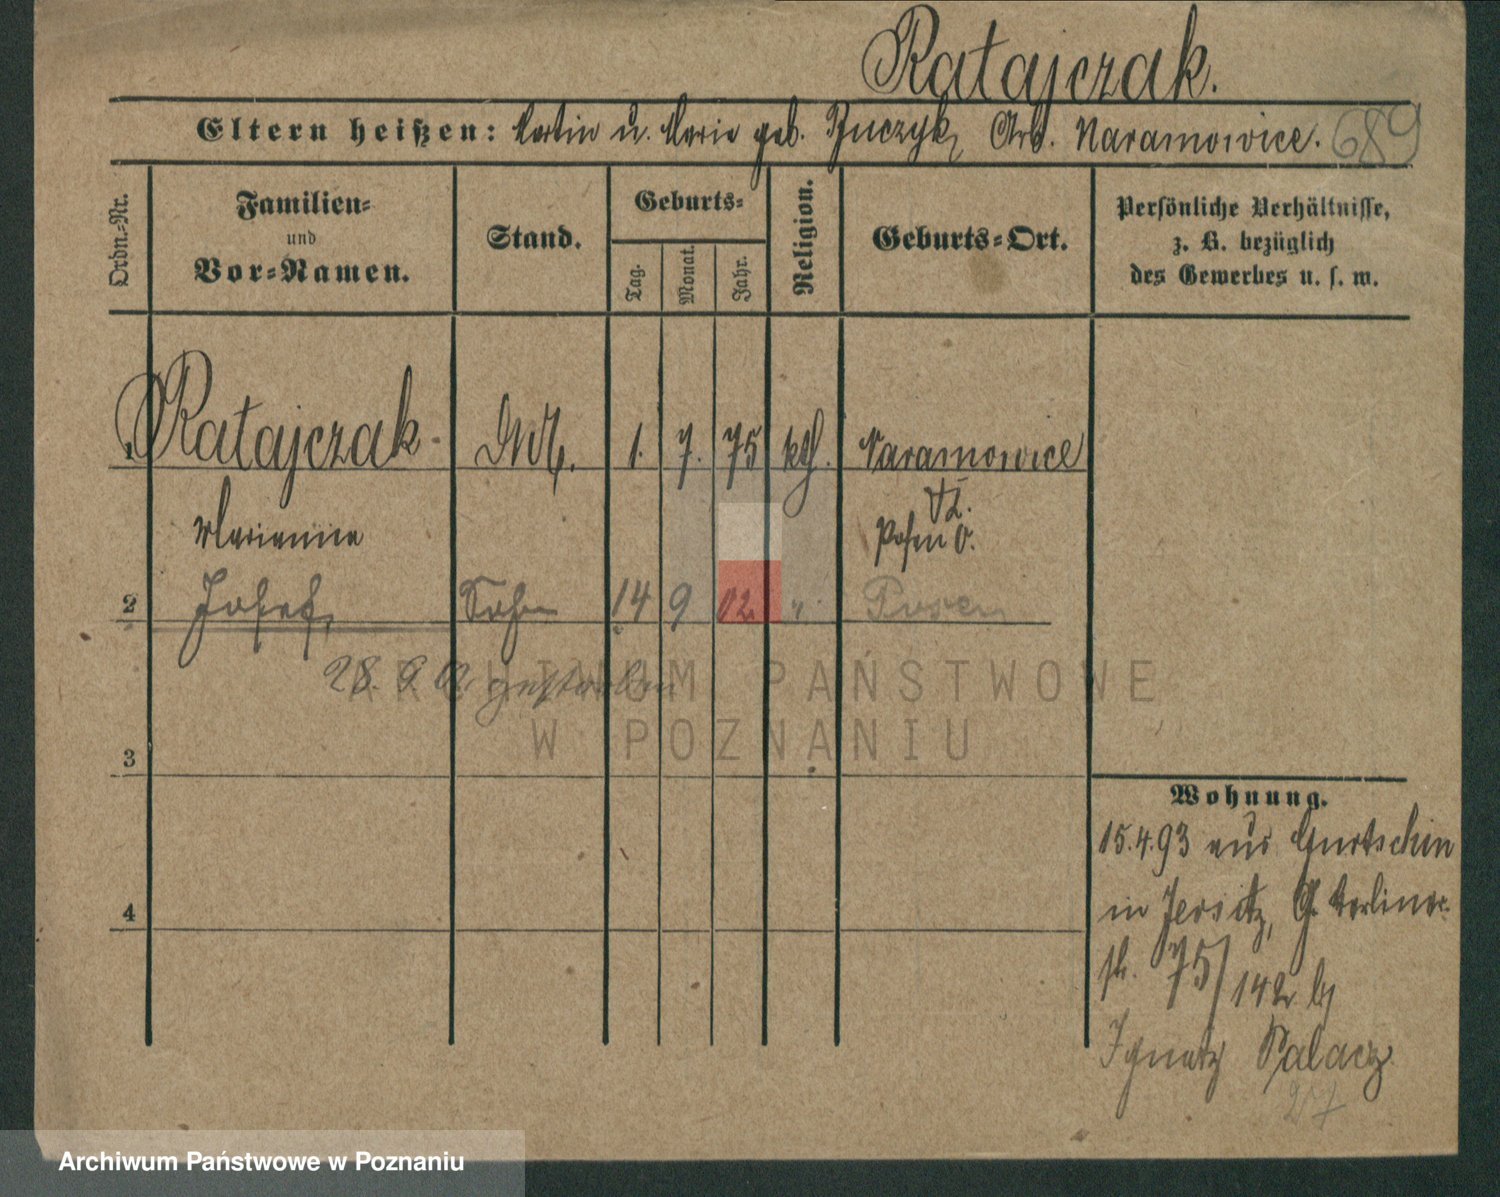 Ratajczak.
Eltern heißen: Martin u. Marie geb. Arb. Naramowice. 689
Ordn.-Nr.
Familien-
und
Vor-Namen.
Stand.
Geburts-
Tag.
Monat.
Jahr.
Religion.
Geburts-Ort.
Persönliche Verhältnisse,
z. B. bezüglich
des Gewerbes u. s. w.
1 Ratajczak. 1. 7. 75 kth. Naramowice
Marianna
Posen O.
2 Josef, Sohn 14 9 02 " Posen
28. 9 02 gestorben
ARCHIWUM PAŃSTWOWE
W POZNANIU
3
4
Wohnung.
15.4.93 aus Gurtschin
in Jersitz, Gr. Berliner-
str. 75/142 b/
Ignatz Palacz
27
Archiwum Państwowe w Poznaniu